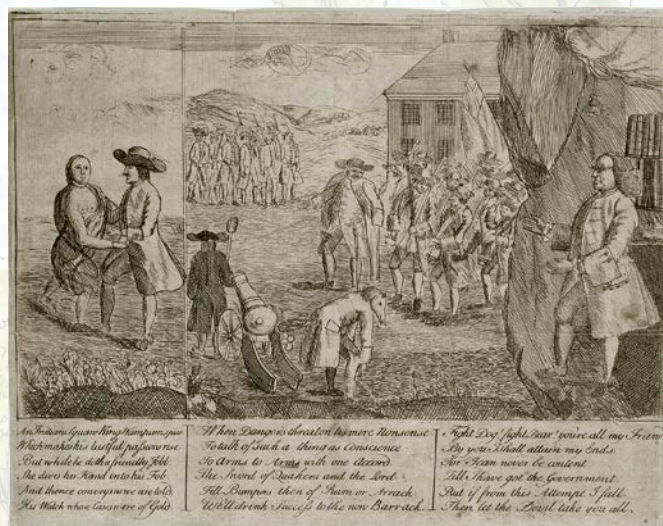 An Indian Squaw King Wampum spies
Which makes his lustful passions rise
But while he doth a friendly Jobb
She dives her Hand into his Fob
And thence conveys as we are told
His Watch whose Cases were of Gold.
When Dangers threaten tis mere Nonsense
To talk of such a thing as Conscience
To Arms to Arms with one Accord
The Sword of Quakers and the Lord
Fill Bumpers then of Rum or Arrack
We'll drink Success to the new Barrack
Fight Dog! fight Bear! you're all my Friends
By you I shall attain my Ends
For I can never be content
Till I have got the Government
But if from this Attempt I fall
Then let the Devil take you all